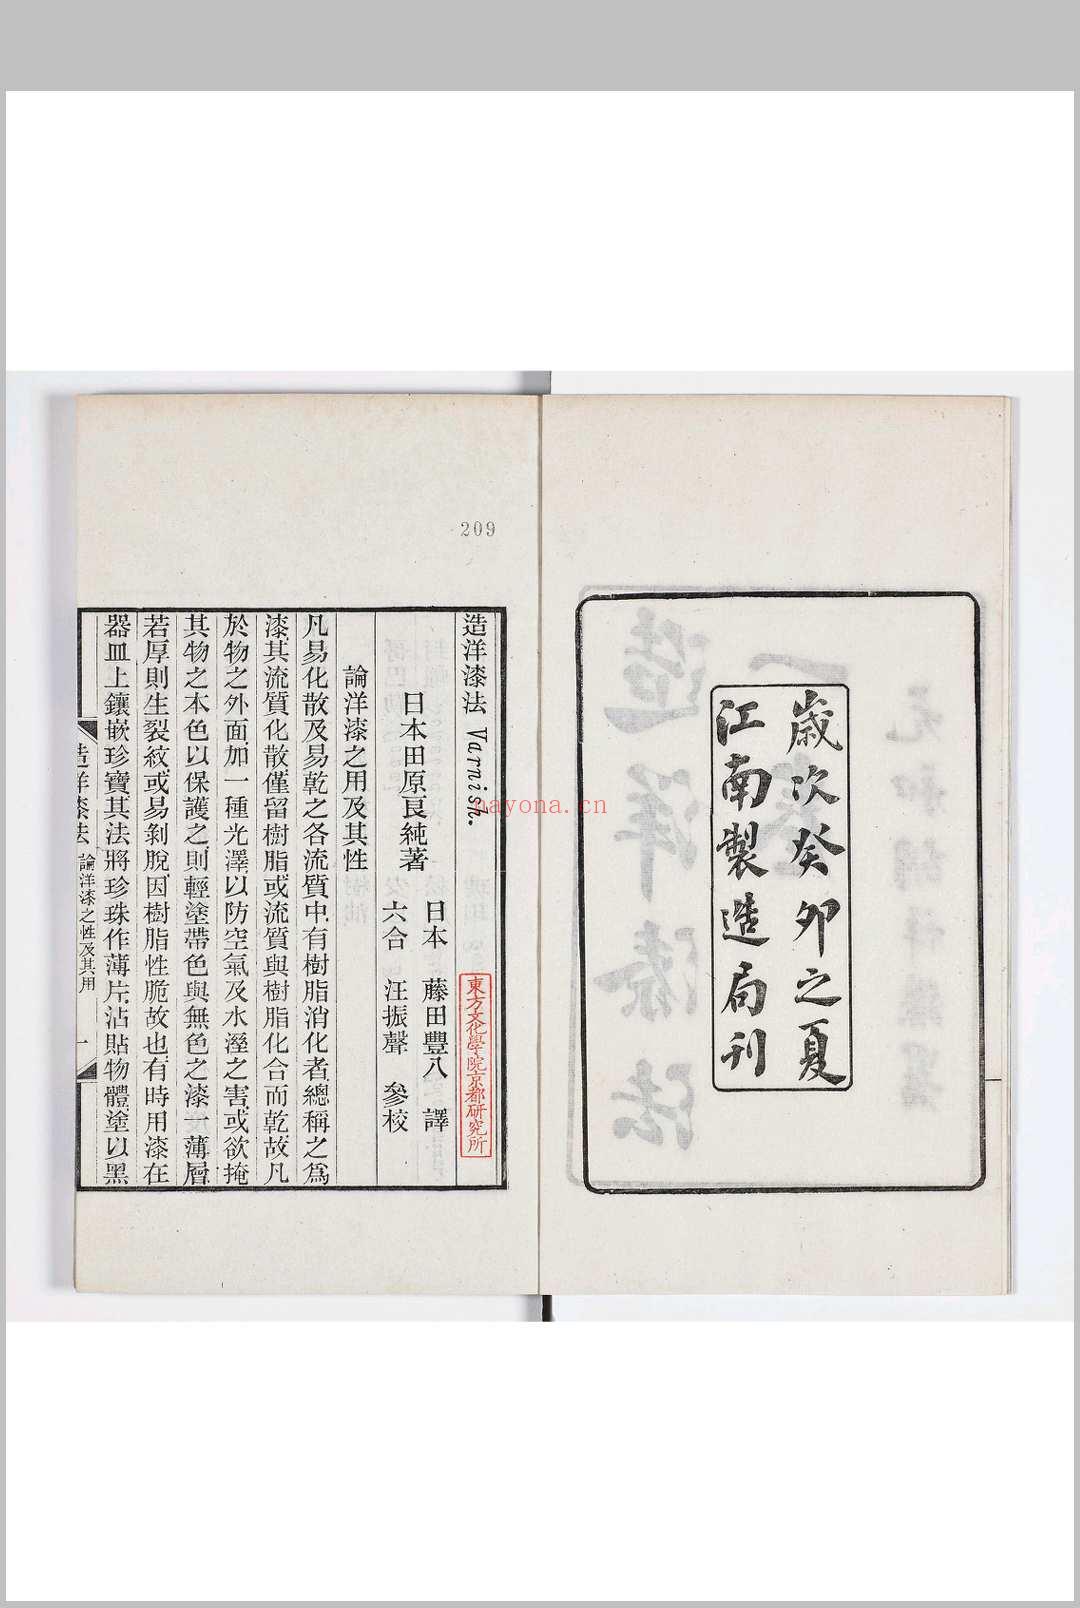 歲次癸卯之夏
江南製造局刊
209
造洋漆法 Varnish.
東方文化學院京都研究所
日本田原良純著
日本 藤田豐八 譯
六合 汪振聲 參校
論洋漆之用及其性
凡易化散及易乾之各流質中有樹脂消化者總稱之爲
漆其流質化散僅留樹脂或流質與樹脂化合而乾故凡
於物之外面加一種光澤以防空氣及水溼之害或欲掩
其物之本色以保護之則輕塗帶色與無色之漆一薄層
若厚則生裂紋或易剝脫因樹脂性脆故也有時用漆在
器皿上鑲嵌珍寶其法將珍珠作薄片沾貼物體塗以黑
造洋漆法 論洋漆之性及其用 一
nayona.cn